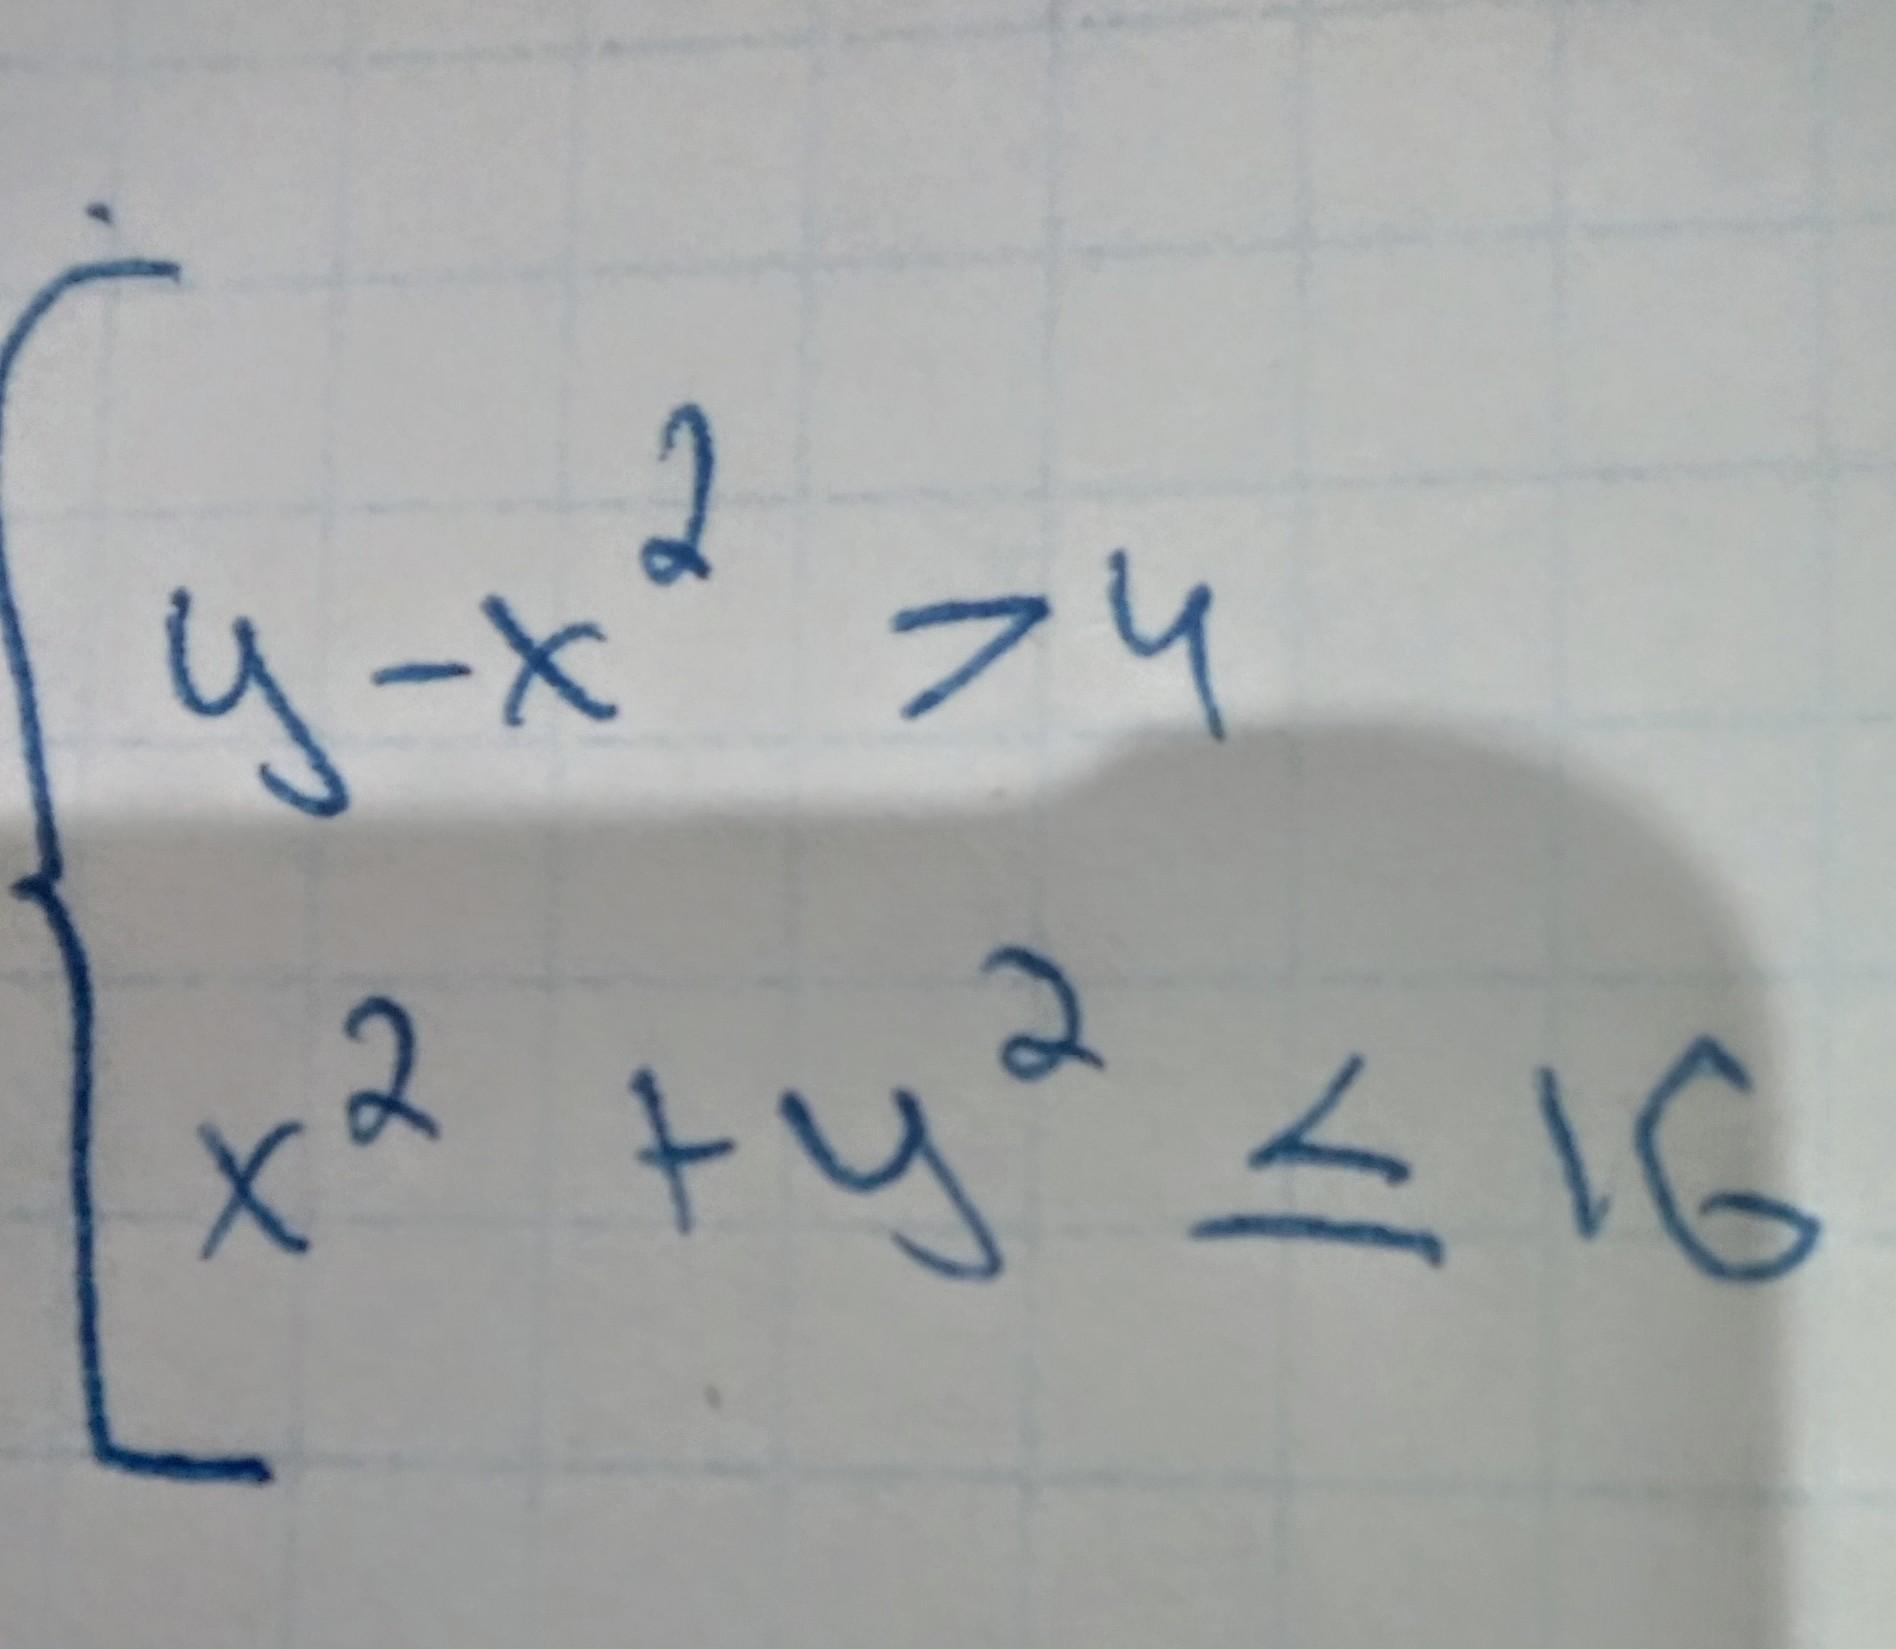 y - x² > 4
x² + y² ≤ 16